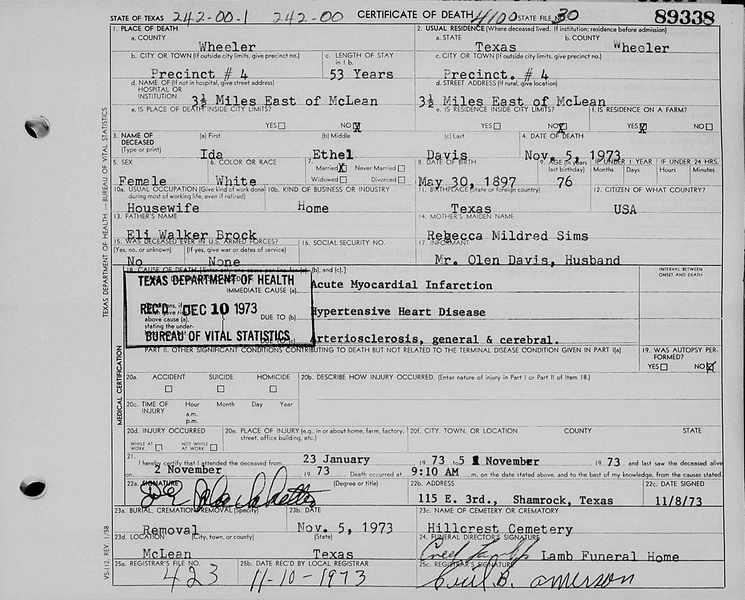 STATE OF TEXAS 242-00-1 242-00 CERTIFICATE OF DEATH 4100 STATE FILE NO. 30 89338
1. PLACE OF DEATH 2. USUAL RESIDENCE (Where deceased lived. If institution: residence before admission)
a. COUNTY a. STATE b. COUNTY
Wheeler Texas Wheeler
b. CITY OR TOWN (If outside city limits, give precinct no.) c. LENGTH OF STAY in 1 b. c. CITY OR TOWN (If outside city limits, give precinct no.)
Precinct # 4 53 Years Precinct. # 4
d. NAME OF (If not in hospital, give street address) HOSPITAL OR INSTITUTION d. STREET ADDRESS (If rural, give location)
3½ Miles East of McLean 3½ Miles East of McLean
e. IS PLACE OF DEATH INSIDE CITY LIMITS? e. IS RESIDENCE INSIDE CITY LIMITS? f. IS RESIDENCE ON A FARM?
YES NO X YES NO X YES X NO
3. NAME OF DECEASED (Type or print) (a) First (b) Middle (c) Last 4. DATE OF DEATH
Ida Ethel Davis Nov. 5, 1973
5. SEX 6. COLOR OR RACE 7. Married X Never Married Widowed Divorced 8. DATE OF BIRTH 9. AGE (In years last birthday) IF UNDER 1 YEAR Months Days IF UNDER 24 HRS. Hours Minutes
Female White May 30, 1897 76
10a. USUAL OCCUPATION (Give kind of work done during most of working life, even if retired) 10b. KIND OF BUSINESS OR INDUSTRY 11. BIRTHPLACE (State or foreign country) 12. CITIZEN OF WHAT COUNTRY?
Housewife Home Texas USA
13. FATHER'S NAME 14. MOTHER'S MAIDEN NAME
Eli Walker Brock Rebecca Mildred Sims
15. WAS DECEASED EVER IN U.S. ARMED FORCES? 16. SOCIAL SECURITY NO. 17. INFORMANT
(Yes, no, or unknown) (If yes, give war or dates of service)
No None Mr. Olen Davis, Husband
18. CAUSE OF DEATH (b), and (c).] INTERVAL BETWEEN ONSET AND DEATH
TEXAS DEPARTMENT OF HEALTH
IMMEDIATE CAUSE (a) Acute Myocardial Infarction
REC'D DEC 10 1973
above cause (a), stating the under- DUE TO (b) Hypertensive Heart Disease
BUREAU OF VITAL STATISTICS
Arteriosclerosis, general & cerebral.
PART II. OTHER SIGNIFICANT CONDITIONS CONTRIBUTING TO DEATH BUT NOT RELATED TO THE TERMINAL DISEASE CONDITION GIVEN IN PART I(a) 19. WAS AUTOPSY PERFORMED?
YES NO X
20a. ACCIDENT SUICIDE HOMICIDE 20b. DESCRIBE HOW INJURY OCCURRED. (Enter nature of injury in Part I or Part II of Item 18.)
20c. TIME OF INJURY Hour a.m. p.m. Month Day Year
20d. INJURY OCCURRED WHILE AT WORK NOT WHILE AT WORK 20e. PLACE OF INJURY (e.g., in or about home, farm, factory, street, office building, etc.) 20f. CITY, TOWN, OR LOCATION COUNTY STATE
21. I hereby certify that I attended the deceased from 23 January 19 73 November 19 73 and last saw the deceased alive
on 2 November 19 73 Death occurred at 9:10 AM m. on the date stated above, and to the best of my knowledge, from the causes stated.
22a. SIGNATURE (Degree or title) 22b. ADDRESS 22c. DATE SIGNED
115 E. 3rd., Shamrock, Texas 11/8/73
23a. BURIAL, CREMATION, REMOVAL (Specify) 23b. DATE 23c. NAME OF CEMETERY OR CREMATORY
Removal Nov. 5, 1973 Hillcrest Cemetery
23d. LOCATION (City, town, or county) (State) 24. FUNERAL DIRECTOR'S SIGNATURE
McLean Texas Lamb Funeral Home
25a. REGISTRAR'S FILE NO. 25b. DATE REC'D BY LOCAL REGISTRAR 25c. REGISTRAR'S SIGNATURE
423 11-10-1973
TEXAS DEPARTMENT OF HEALTH — BUREAU OF VITAL STATISTICS
MEDICAL CERTIFICATION
VS-112, REV. 1/58